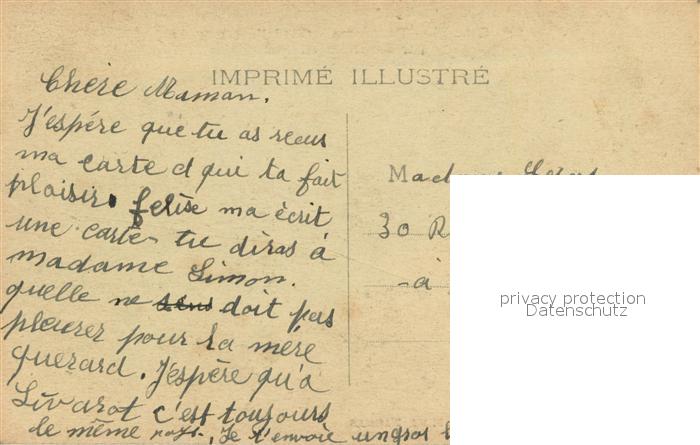 IMPRIMÉ ILLUSTRÉ
Chère Maman.
J'espère que tu as recus
ma carte et qui ta fait
plaisir. felise ma ècrit
une carte tu diras à
madame Simon.
quelle ne doit pas
pleurer pour la mére
Guerard. J'espère qu'a
Livarot c'est toujours
le même Je t'envoie un gros
Mad
30 R
-à
privacy protection
Datenschutz